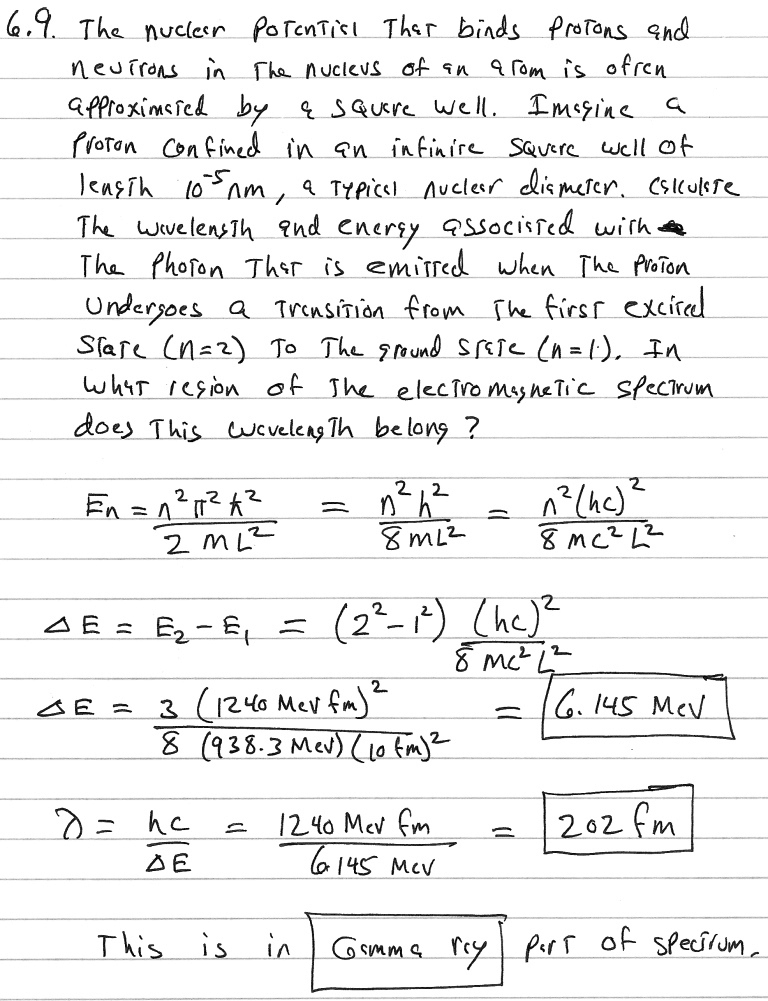 6.9. The nuclear Potential That binds Protons and
neutrons in The nucleus of an atom is often
approximated by a square well. Imagine a
Proton confined in an infinite square well of
length 10⁻⁵ nm, a Typical nuclear diameter. Calculate
The wavelength and energy associated with
The Photon That is emitted when The Proton
Undergoes a Transition from The first excited
State (n=2) To The ground State (n=1). In
what region of The electromagnetic spectrum
does This wavelength belong?
En = n²π²ħ² / 2 mL² = n²h² / 8 mL² = n²(hc)² / 8 mc² L²
ΔE = E₂ - E₁ = (2² - 1²) (hc)² / 8 mc² L²
ΔE = 3 (1240 MeV fm)² / 8 (938.3 MeV) (10 fm)² = 6.145 MeV
λ = hc / ΔE = 1240 MeV fm / 6.145 MeV = 202 fm
This is in Gamma ray part of spectrum.